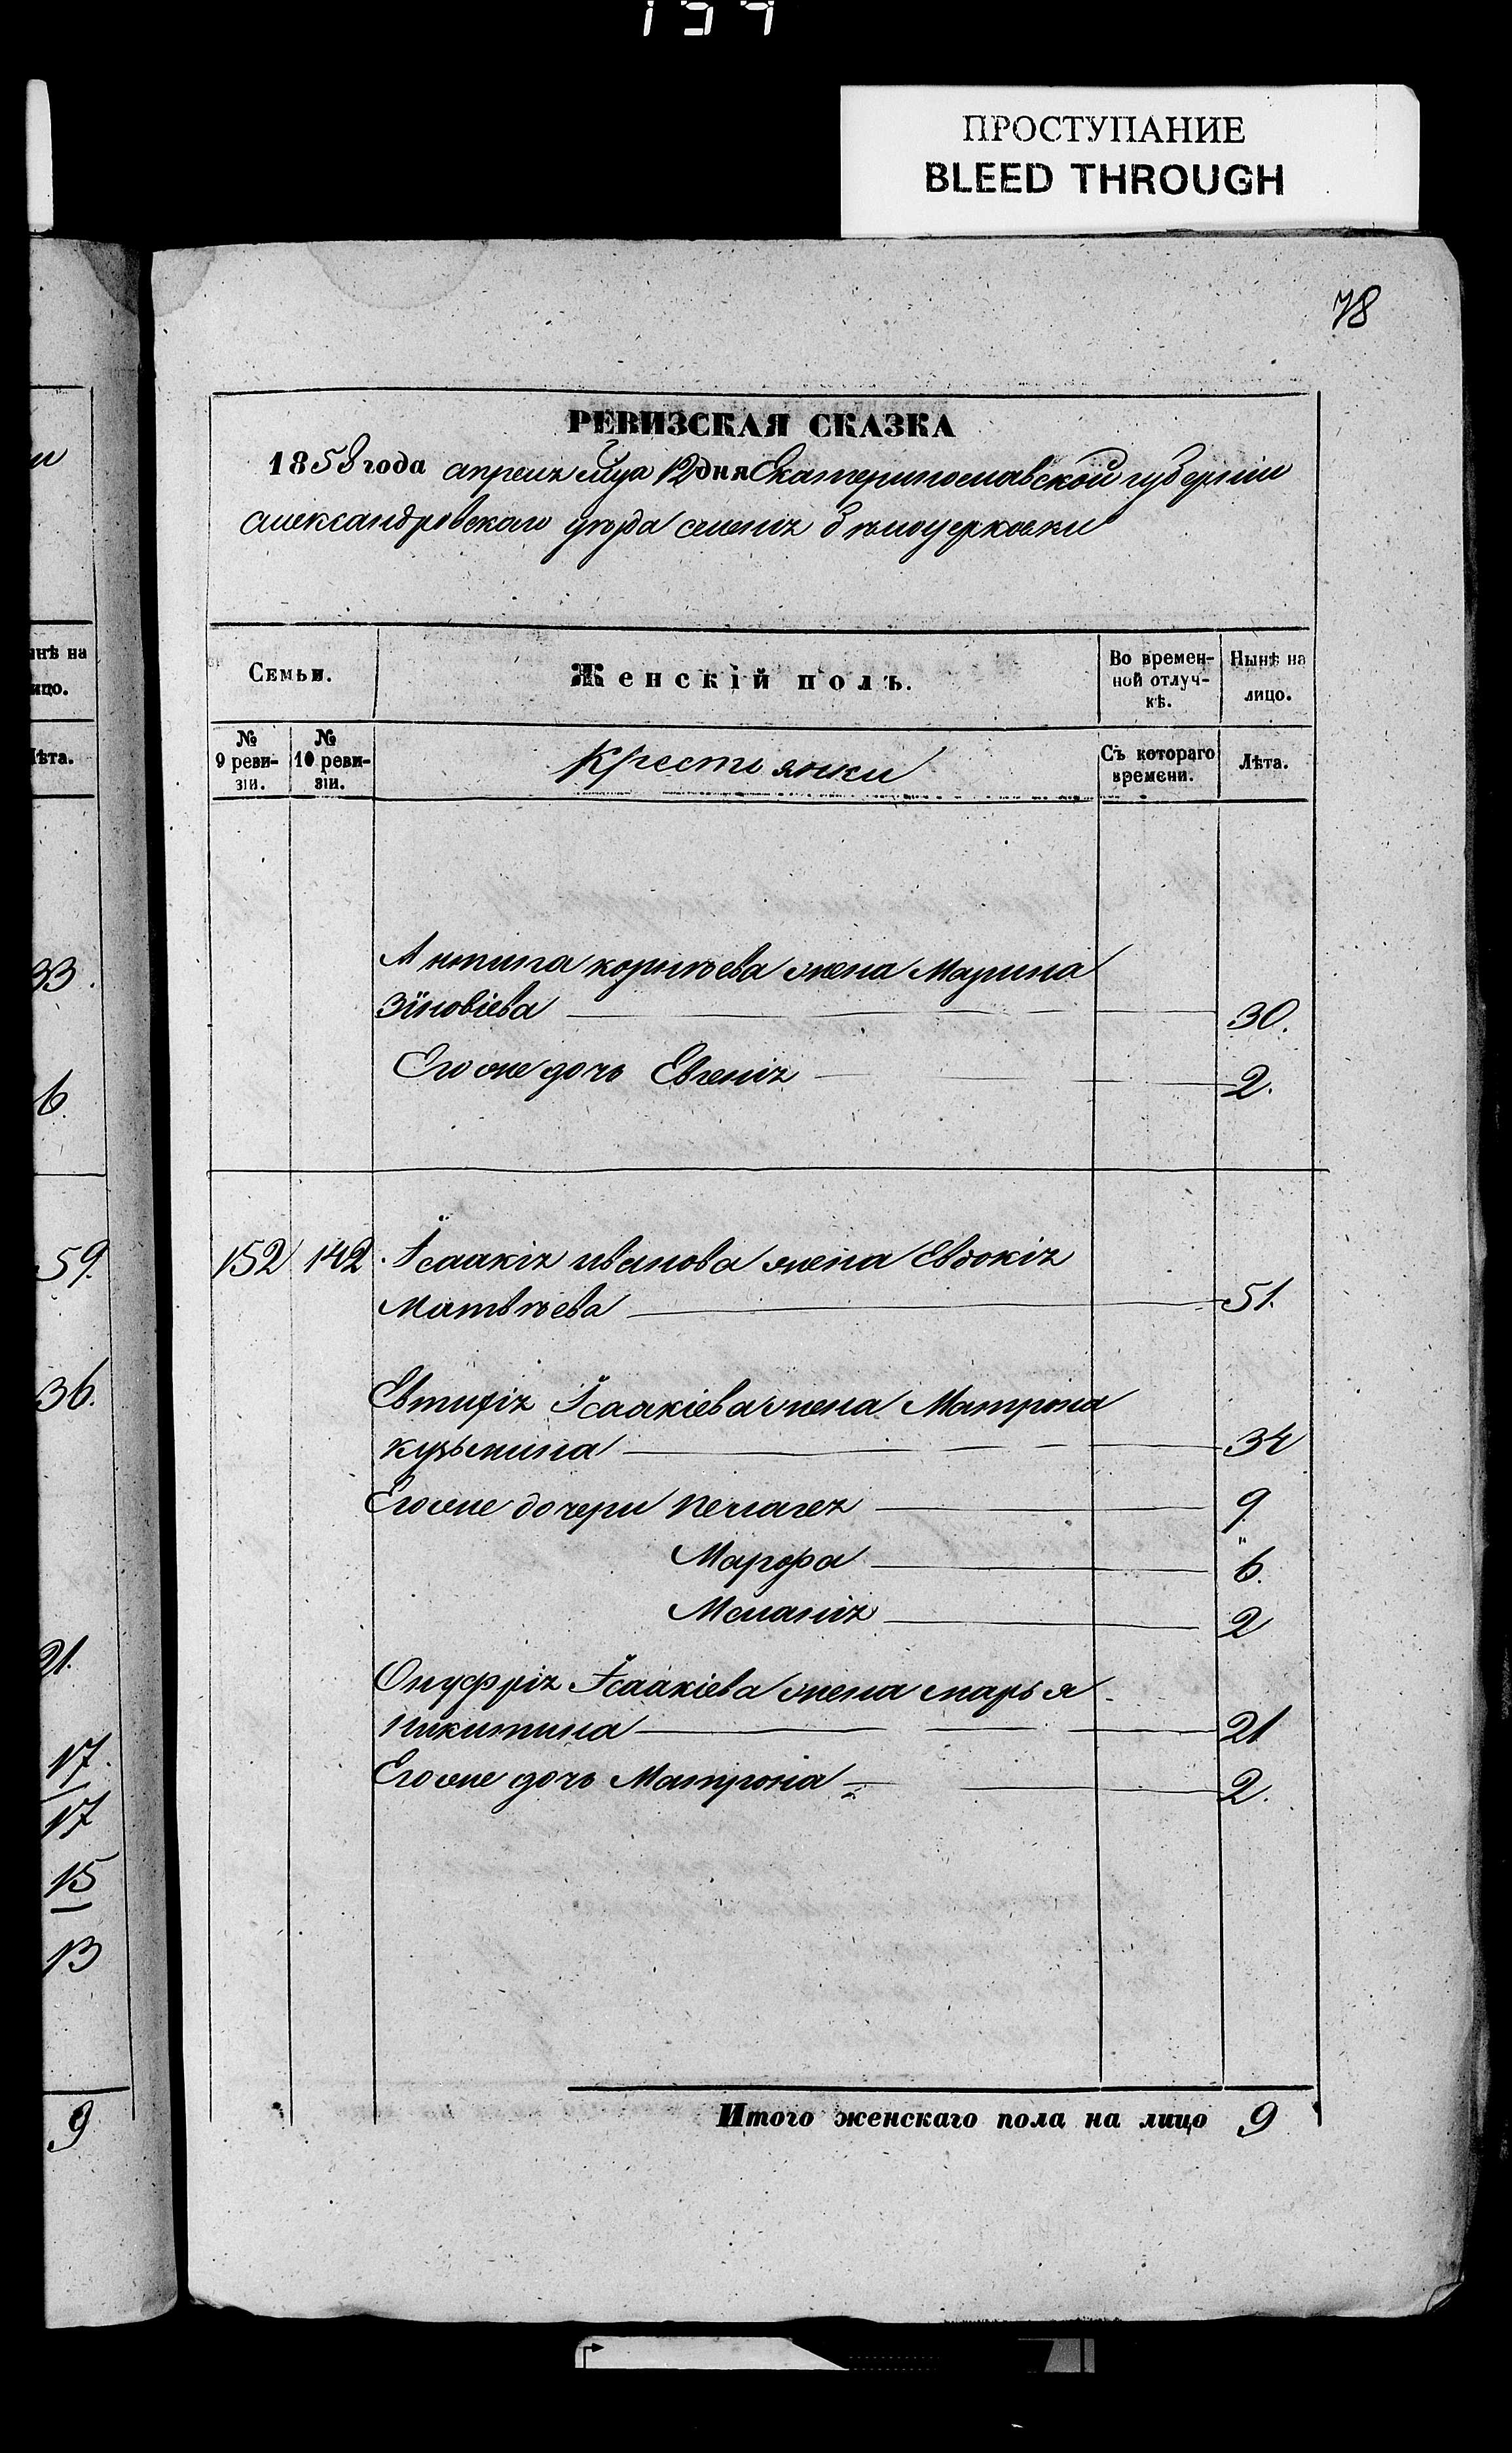 ПРОСТУПАНИЕ
BLEED THROUGH
78
РЕВИЗСКАЯ СКАЗКА
1858 года апреля м҃ца 12 дня Екатеринославской губерніи
александровскаго уѣзда селенія бѣлоцерковки
Семьи.
Женскій полъ.
Во времен-
ной отлуч-
кѣ.
Нынѣ на
лицо.
№
9 реви-
зіи.
№
10 реви-
зіи.
Крестьянки
Съ котораго
времени.
Лѣта.
Антипа корнѣева жена Марина
Зиновіева 30.
Его же дочь Евгенія 2.
152 142 Ісаакія иванова жена Евдокія
Матвѣева 51.
Евтифія Ісаакіева жена Матрона
кузьмина 34
Его же дочери Пелагея 9
Марфа 6.
Меланія 2
Онуфрія Ісаакіева жена марья
никитина 21
Его же дочь Матрона 2.
Итого женскаго пола на лицо 9
нѣ на
ицо.
ѣта.
33.
6
59.
36.
21.
17.
17
15
13
9